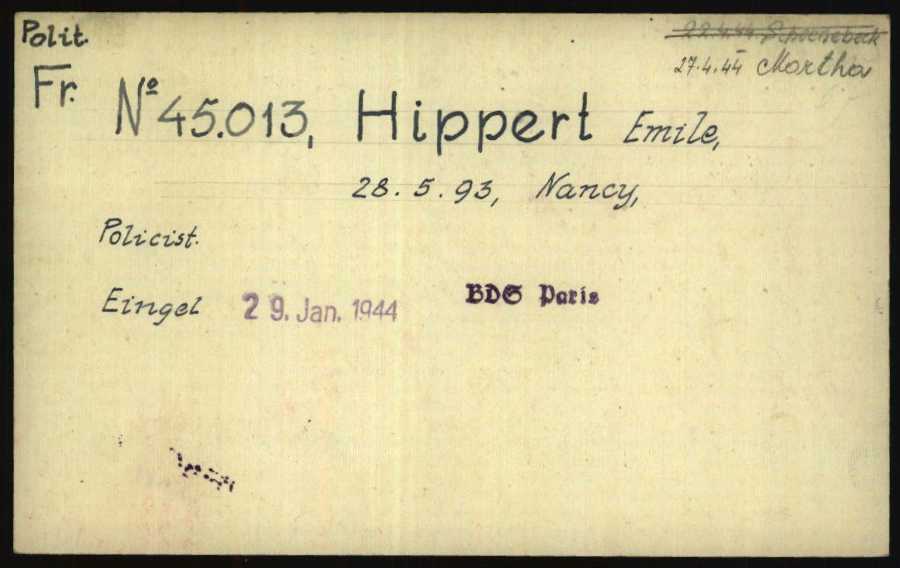 Polit.
22.4.44 Schoenebeck
27.4.44 Martha
Fr.
Nº 45.013, Hippert Emile,
28.5.93, Nancy,
Policist.
Eingel 29. Jan. 1944 BDS Paris